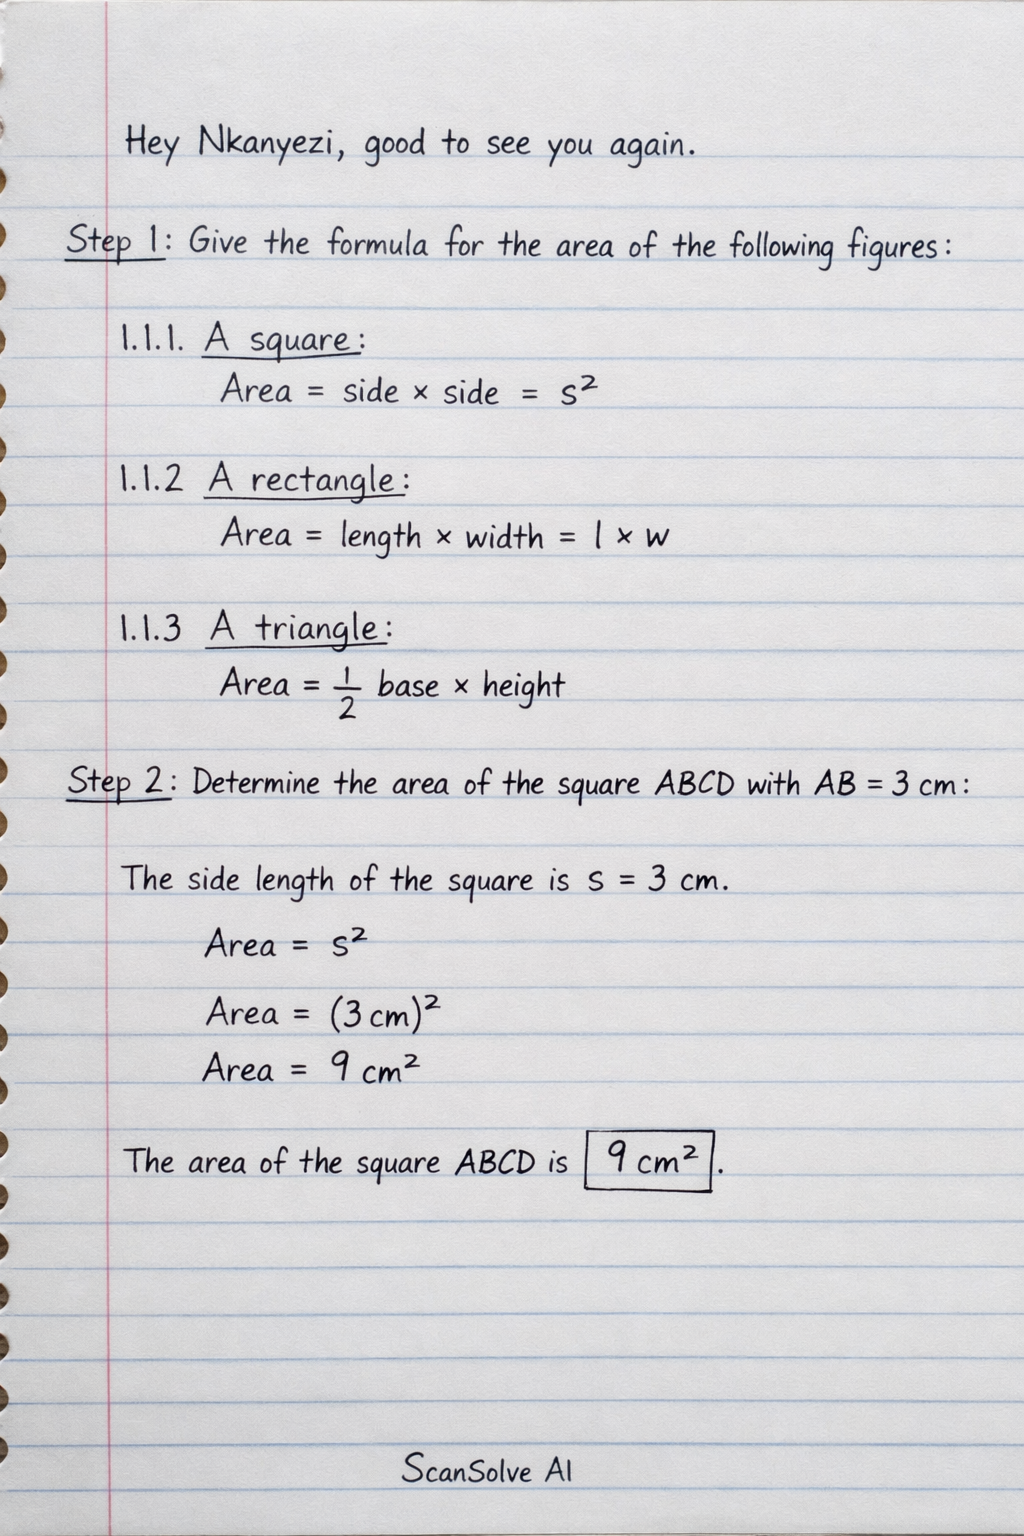 Hey Nkanyezi, good to see you again.
Step 1: Give the formula for the area of the following figures:
1.1.1. A square:
Area = side × side = s²
1.1.2 A rectangle:
Area = length × width = l × w
1.1.3 A triangle:
Area = 1/2 base × height
Step 2: Determine the area of the square ABCD with AB = 3 cm:
The side length of the square is s = 3 cm.
Area = s²
Area = (3 cm)²
Area = 9 cm²
The area of the square ABCD is 9 cm².
ScanSolve AI